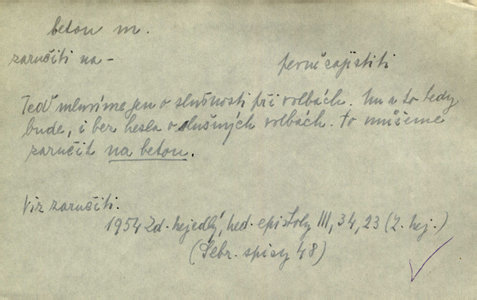 beton m.
zaručiti na -
pevně zajistiti
Teď mluvíme jen o slušnosti při volbách. Nu a to tedy
bude, i bez hesla o slušných volbách. To můžeme
zaručit na beton.
Viz zaručiti.
1954 Zd. Nejedlý, Ned. epištoly III, 34, 23 (Z. Nej.)
(Sebr. spisy 48)